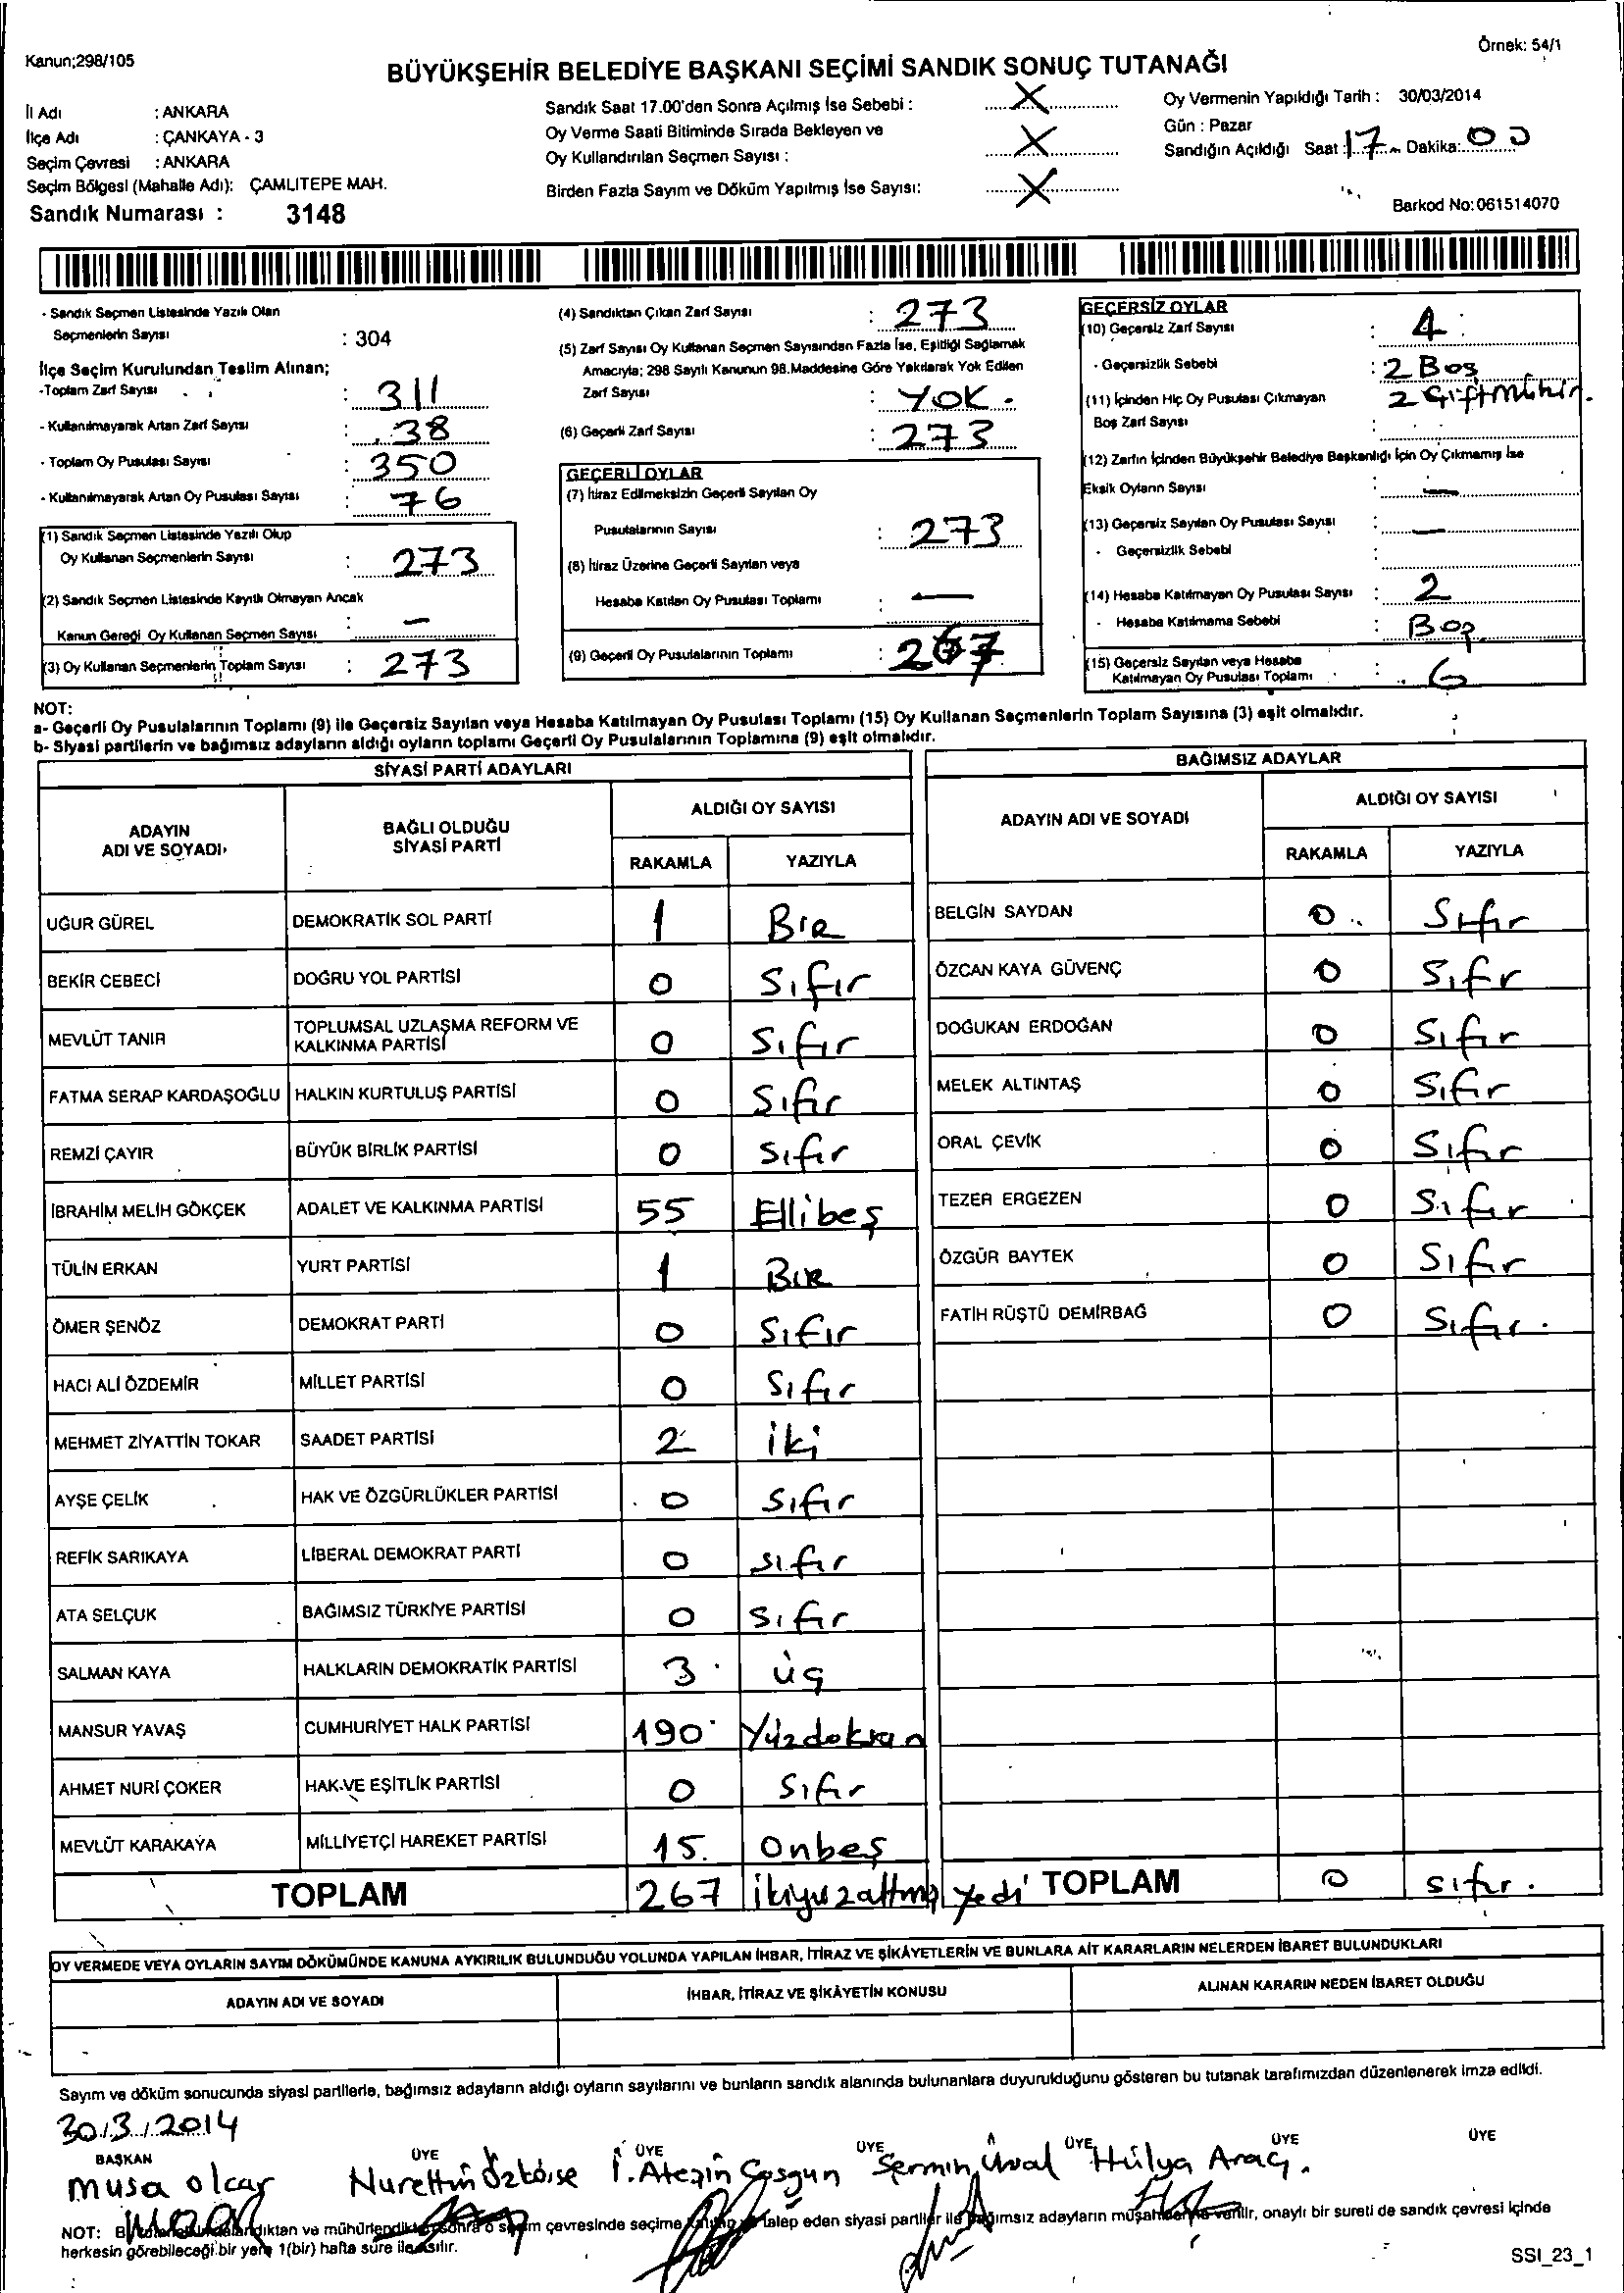 Kanun;298/105
Örnek: 54/1
BÜYÜKŞEHİR BELEDİYE BAŞKANI SEÇİMİ SANDIK SONUÇ TUTANAĞI
İl Adı : ANKARA
İlçe Adı : ÇANKAYA - 3
Seçim Çevresi : ANKARA
Seçim Bölgesi (Mahalle Adı): ÇAMLITEPE MAH.
Sandık Numarası : 3148
Sandık Saat 17.00'den Sonra Açılmış İse Sebebi : X
Oy Verme Saati Bitiminde Sırada Bekleyen ve
Oy Kullandırılan Seçmen Sayısı : X
Birden Fazla Sayım ve Döküm Yapılmış İse Sayısı: X
Oy Vermenin Yapıldığı Tarih : 30/03/2014
Gün : Pazar
Sandığın Açıldığı Saat : 17 Dakika: 00
Barkod No:061514070
- Sandık Seçmen Listesinde Yazılı Olan
Seçmenlerin Sayısı : 304
İlçe Seçim Kurulundan Teslim Alınan;
-Toplam Zarf Sayısı : 311
- Kullanılmayarak Artan Zarf Sayısı : 38
- Toplam Oy Pusulası Sayısı : 350
- Kullanılmayarak Artan Oy Pusulası Sayısı : 76
(1) Sandık Seçmen Listesinde Yazılı Olup
Oy Kullanan Seçmenlerin Sayısı : 273
(2) Sandık Seçmen Listesinde Kayıtlı Olmayan Ancak
Kanun Gereği Oy Kullanan Seçmen Sayısı : -
(3) Oy Kullanan Seçmenlerin Toplam Sayısı : 273
(4) Sandıktan Çıkan Zarf Sayısı : 273
(5) Zarf Sayısı Oy Kullanan Seçmen Sayısından Fazla İse, Eşitliği Sağlamak
Amacıyla; 298 Sayılı Kanunun 98.Maddesine Göre Yakılarak Yok Edilen
Zarf Sayısı : YOK.
(6) Geçerli Zarf Sayısı : 273
GEÇERLİ OYLAR
(7) İtiraz Edilmeksizin Geçerli Sayılan Oy
Pusulalarının Sayısı : 273
(8) İtiraz Üzerine Geçerli Sayılan veya
Hesaba Katılan Oy Pusulası Toplamı : -
(9) Geçerli Oy Pusulalarının Toplamı : 267
GEÇERSİZ OYLAR
(10) Geçersiz Zarf Sayısı : 4
- Geçersizlik Sebebi : 2 Boş
2 Çift Mühür.
(11) İçinden Hiç Oy Pusulası Çıkmayan
Boş Zarf Sayısı :
(12) Zarfın İçinden Büyükşehir Belediye Başkanlığı İçin Oy Çıkmamış İse
Eksik Oyların Sayısı : -
(13) Geçersiz Sayılan Oy Pusulası Sayısı : -
- Geçersizlik Sebebi :
(14) Hesaba Katılmayan Oy Pusulası Sayısı : 2
- Hesaba Katılmama Sebebi : Boş
(15) Geçersiz Sayılan veya Hesaba
Katılmayan Oy Pusulası Toplamı : 6
NOT:
a- Geçerli Oy Pusulalarının Toplamı (9) ile Geçersiz Sayılan veya Hesaba Katılmayan Oy Pusulası Toplamı (15) Oy Kullanan Seçmenlerin Toplam Sayısına (3) eşit olmalıdır.
b- Siyasi partilerin ve bağımsız adayların aldığı oyların toplamı Geçerli Oy Pusulalarının Toplamına (9) eşit olmalıdır.
SİYASİ PARTİ ADAYLARI
ADAYIN ADI VE SOYADI BAĞLI OLDUĞU SİYASİ PARTİ ALDIĞI OY SAYISI
RAKAMLA YAZIYLA
UĞUR GÜREL DEMOKRATİK SOL PARTİ 1 Bir
BEKİR CEBECİ DOĞRU YOL PARTİSİ 0 Sıfır
MEVLÜT TANIR TOPLUMSAL UZLAŞMA REFORM VE KALKINMA PARTİSİ 0 Sıfır
FATMA SERAP KARDAŞOĞLU HALKIN KURTULUŞ PARTİSİ 0 Sıfır
REMZİ ÇAYIR BÜYÜK BİRLİK PARTİSİ 0 Sıfır
İBRAHİM MELİH GÖKÇEK ADALET VE KALKINMA PARTİSİ 55 Ellibeş
TÜLİN ERKAN YURT PARTİSİ 1 Bir
ÖMER ŞENÖZ DEMOKRAT PARTİ 0 Sıfır
HACI ALİ ÖZDEMİR MİLLET PARTİSİ 0 Sıfır
MEHMET ZİYATTİN TOKAR SAADET PARTİSİ 2 iki
AYŞE ÇELİK HAK VE ÖZGÜRLÜKLER PARTİSİ 0 Sıfır
REFİK SARIKAYA LİBERAL DEMOKRAT PARTİ 0 sıfır
ATA SELÇUK BAĞIMSIZ TÜRKİYE PARTİSİ 0 Sıfır
SALMAN KAYA HALKLARIN DEMOKRATİK PARTİSİ 3 üç
MANSUR YAVAŞ CUMHURİYET HALK PARTİSİ 190 Yüzdoksan
AHMET NURİ ÇOKER HAK VE EŞİTLİK PARTİSİ 0 Sıfır
MEVLÜT KARAKAYA MİLLİYETÇİ HAREKET PARTİSİ 15 Onbeş
TOPLAM 267 ikiyüzaltmış yedi
BAĞIMSIZ ADAYLAR
ADAYIN ADI VE SOYADI ALDIĞI OY SAYISI
RAKAMLA YAZIYLA
BELGİN SAYDAN 0 Sıfır
ÖZCAN KAYA GÜVENÇ 0 Sıfır
DOĞUKAN ERDOĞAN 0 Sıfır
MELEK ALTINTAŞ 0 Sıfır
ORAL ÇEVİK 0 Sıfır
TEZER ERGEZEN 0 Sıfır
ÖZGÜR BAYTEK 0 Sıfır
FATİH RÜŞTÜ DEMİRBAĞ 0 Sıfır.
TOPLAM 0 sıfır.
OY VERMEDE VEYA OYLARIN SAYIM DÖKÜMÜNDE KANUNA AYKIRILIK BULUNDUĞU YOLUNDA YAPILAN İHBAR, İTİRAZ VE ŞİKÂYETLERİN VE BUNLARA AİT KARARLARIN NELERDEN İBARET BULUNDUKLARI
ADAYIN ADI VE SOYADI İHBAR, İTİRAZ VE ŞİKÂYETİN KONUSU ALINAN KARARIN NEDEN İBARET OLDUĞU
Sayım ve döküm sonucunda siyasi partilerle, bağımsız adayların aldığı oyların sayılarını ve bunların sandık alanında bulunanlara duyurulduğunu gösteren bu tutanak tarafımızdan düzenlenerek imza edildi.
30/3/2014
BAŞKAN ÜYE ÜYE ÜYE ÜYE ÜYE ÜYE
Musa Olcay Nurettin Özköse İ. Atezin Coşgun Sermin Ünal Hülya Araç.
NOT: ve mühürlendikten sonra o seçim çevresinde seçime talep eden siyasi partiler ile bağımsız adayların müşahitlerine verilir, onaylı bir sureti de sandık çevresi içinde
herkesin görebileceği bir yere 1(bir) hafta süre ile asılır.
SSI_23_1